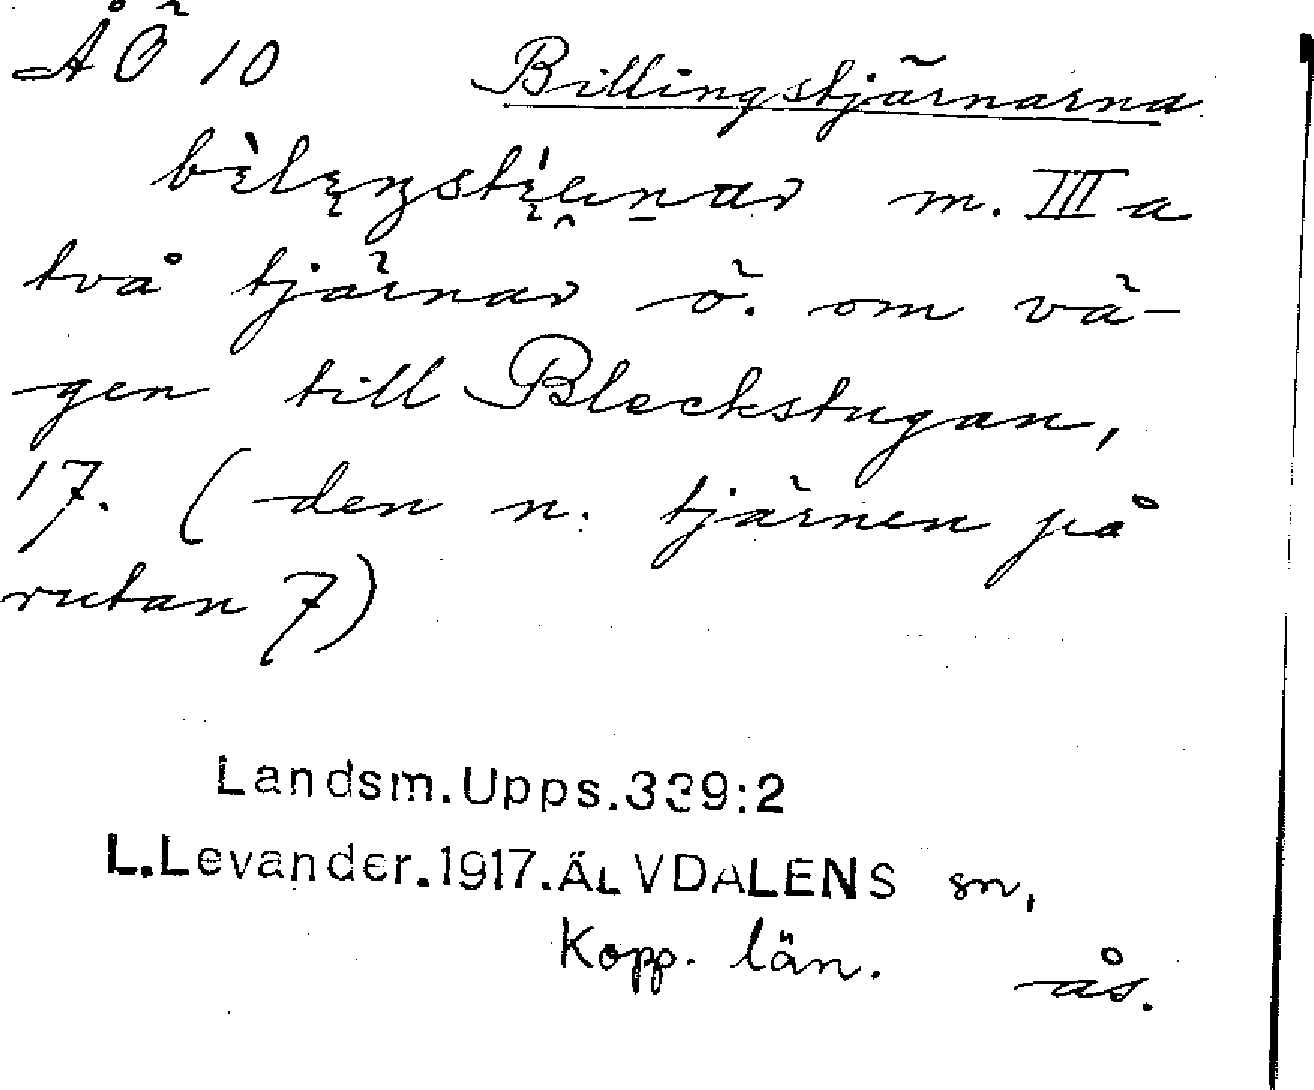 ÅÖ 10 Billingstjärnarna
m. III a
två tjärnar ö. om vä-
gen till Bleckstugan,
17. (den n. tjärnen på
rutan 7)
Landsm.Upps.339:2
L.Levander.1917.ÄLVDALENS sn,
Kopp. län.
ås.